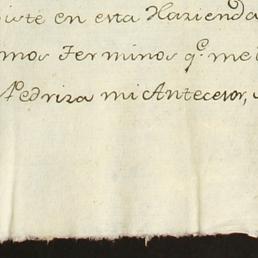 iste en esta Hazienda
mos Terminos q.e me
Pedriza mi Antecesor,